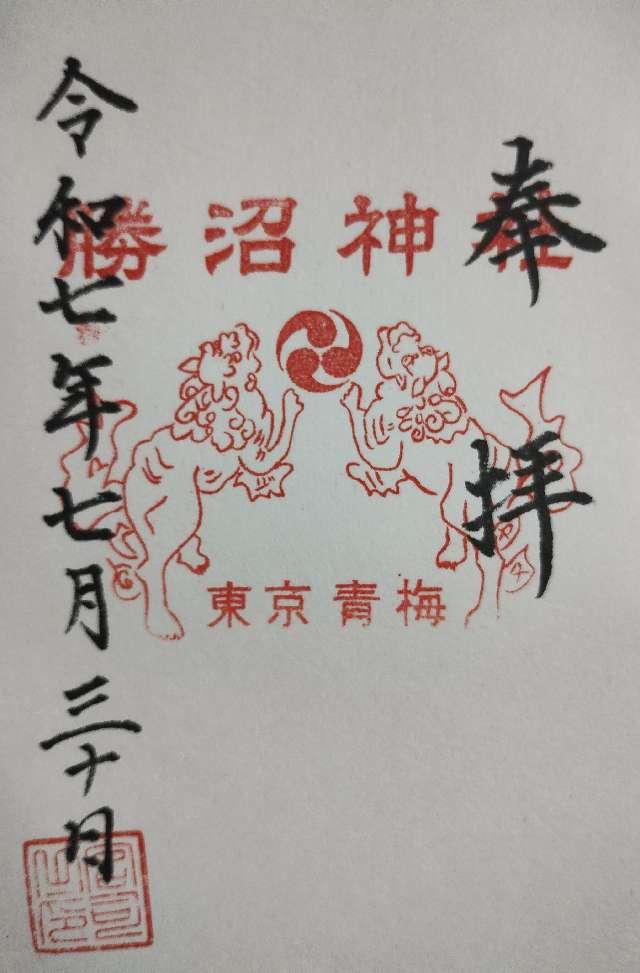 奉拝
勝沼神社
東京青梅
令和七年七月三十日